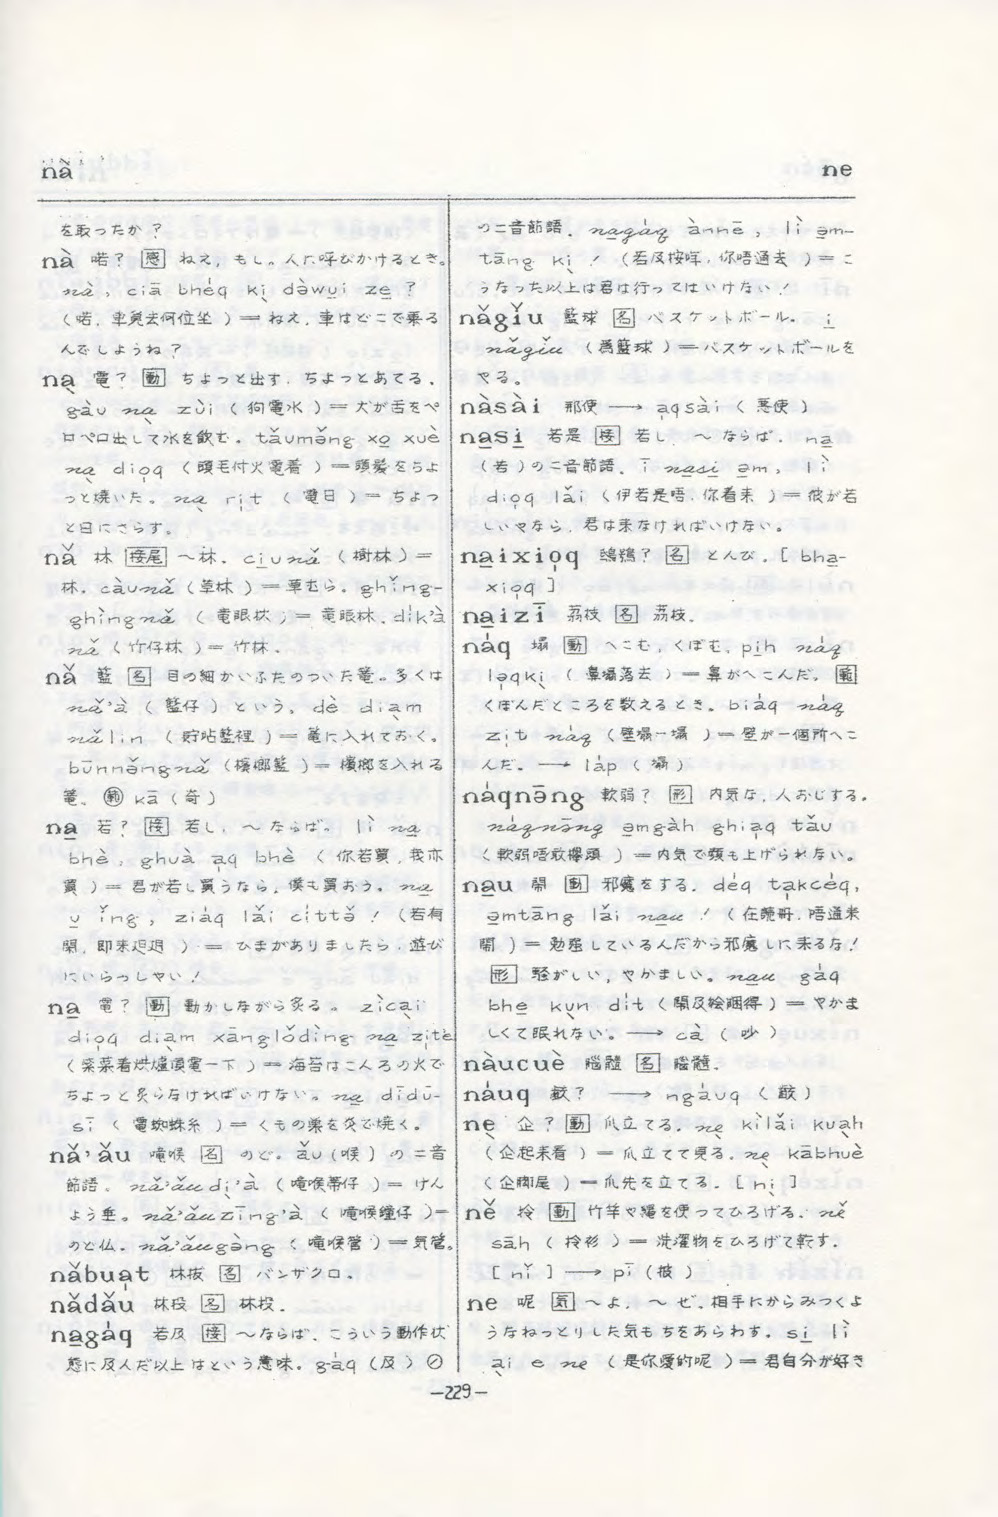 nà
ne
を取ったか？
nà 喏？ 感 ねえ，もし。人に呼びかけるとき。
nà, ciā bhéq kì dàwui ze ?
(喏，車與去何位坐)＝ねえ，車はどこで乗る
んでしょうね？
動 ちょっと出す．ちょっとあてる．
＝犬が舌をペ
ロペロ出して水を飲む。
＝頭髪をちょ
っと焼いた。 ＝ちょっ
と日にさらす。
nǎ 林 接尾 ～林．ciunǎ (樹林)＝
林．càunǎ (草林)＝草むら．ghǐng-
ghìngnǎ (竜眼林)＝竜眼林．dik'à
nǎ (竹仔林)＝竹林．
nǎ 籃 名 目の細かいふたのついた篭。多くは
nǎ'à (籃仔) という。dè diam
nǎlin (貯站籃裡)＝篭に入れておく。
būnnǒngnǎ (檳榔籃)＝檳榔を入れる
篭。 kā (奇)
na 若？ 接 若し，～ならば。lì na
bhè, ghuà aq bhè (你若買，我亦
買)＝君が若し買うなら，僕も買おう。na
u ǐng, ziáq lǎi (若有
閒，即来)＝ひまがありましたら，遊び
にいらっしゃい！
動 動かしながら炙る。zǐcai
dioq diàm xānglódìng na zitè
＝海苔はこんろの火で
ちょっと炙らなければいけない。na dīdū-
sī ＝くもの巣を炎で焼く。
nǎ'ǎu 嚨喉 名 のど。ǎu(喉)の二音
節語。nǎ'ǎudi'à ＝けん
よう垂。nǎ'ǎuzīng'à ＝
のど仏．nǎ'ǎugòng (嚨喉管)＝気管。
nǎbuat 林拔 名 バンザクロ．
nǎdǎu 林投 名 林投．
nagáq 若及 接 ～ならば．こういう動作状
態に及んだ以上はという意味。gáq (及)
の二音節語．nagáq ànnē, lì əm-
tāng kì ! ＝こ
うなった以上は君は行ってはいけない！
nǎgǐu 籃球 名 バスケットボール． i
nǎgǐu ＝バスケットボールを
やる。
nàsài 那使 → aqsài (悪使)
nasi 若是 接 若し，～ならば． na
(若)の二音節語．ī nasi əm, lì
dioq lǎi (伊若是唔，你着来)＝彼が若
しいやなら，君は来なければいけない。
naixioq 名 とんび．[bha-
xioq]
naizī 茘枝 名 茘枝．
náq 塌 動 へこむ，くぼむ．pih náq
ləqkì (鼻塌落去)＝鼻がへこんだ。
くぼんだところを数えるとき。biáq náq
zit náq (壁塌一塌)＝壁が一個所へこ
んだ。→ láp (塌)
náqnōng 軟弱？ 形 内気な，人おじする．
náqnōng əmgàh ghiaq tǎu
＝内気で頭も上げられない。
nau 鬧 動 邪魔をする．déq takcéq,
əmtāng lǎi nau !
鬧)＝勉強しているんだから邪魔しに来るな！
形 騒がしい，やかましい。nau gáq
bhe kun dit ＝やかま
しくて眠れない。→ cà (吵)
nàucuè 脳髓 名 脳髄．
náuq → ngáuq
企？ 動 爪立てる． kilǎi kuah
(企起来看)＝爪立てて見る． kābhuè
(企脚尾)＝爪先を立てる．
ně 拎 動 竹竿や縄を使ってひろげる． ně
sāh ＝洗濯物をひろげて乾す．
[nǐ] → pī (披)
ne 呢 気 ～よ，～ぜ．相手にからみつくよ
うなねっとりした気もちをあらわす．si lì
ai e ne (是你愛的呢)＝君自分が好き
—229—